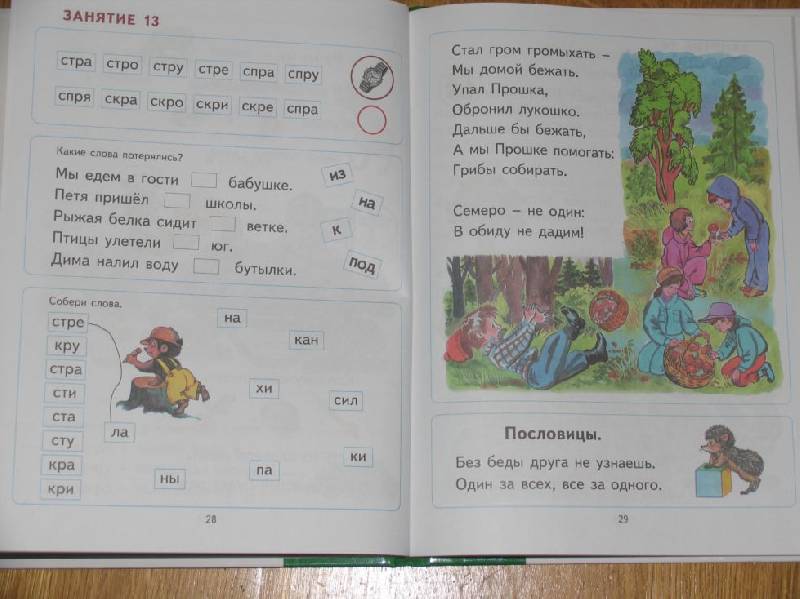 ЗАНЯТИЕ 13
стра стро стру стре спра спру
спря скра скро скри скре спра
Какие слова потерялись?
Мы едем в гости бабушке.
Петя пришёл школы.
Рыжая белка сидит ветке.
Птицы улетели юг.
Дима налил воду бутылки.
из
на
к
под
Собери слова.
стре
кру
стра
сти
ста
сту
кра
кри
на
кан
хи
сил
ла
ки
па
ны
28
Стал гром громыхать –
Мы домой бежать.
Упал Прошка,
Обронил лукошко.
Дальше бы бежать,
А мы Прошке помогать:
Грибы собирать.
Семеро – не один:
В обиду не дадим!
Пословицы.
Без беды друга не узнаешь.
Один за всех, все за одного.
29